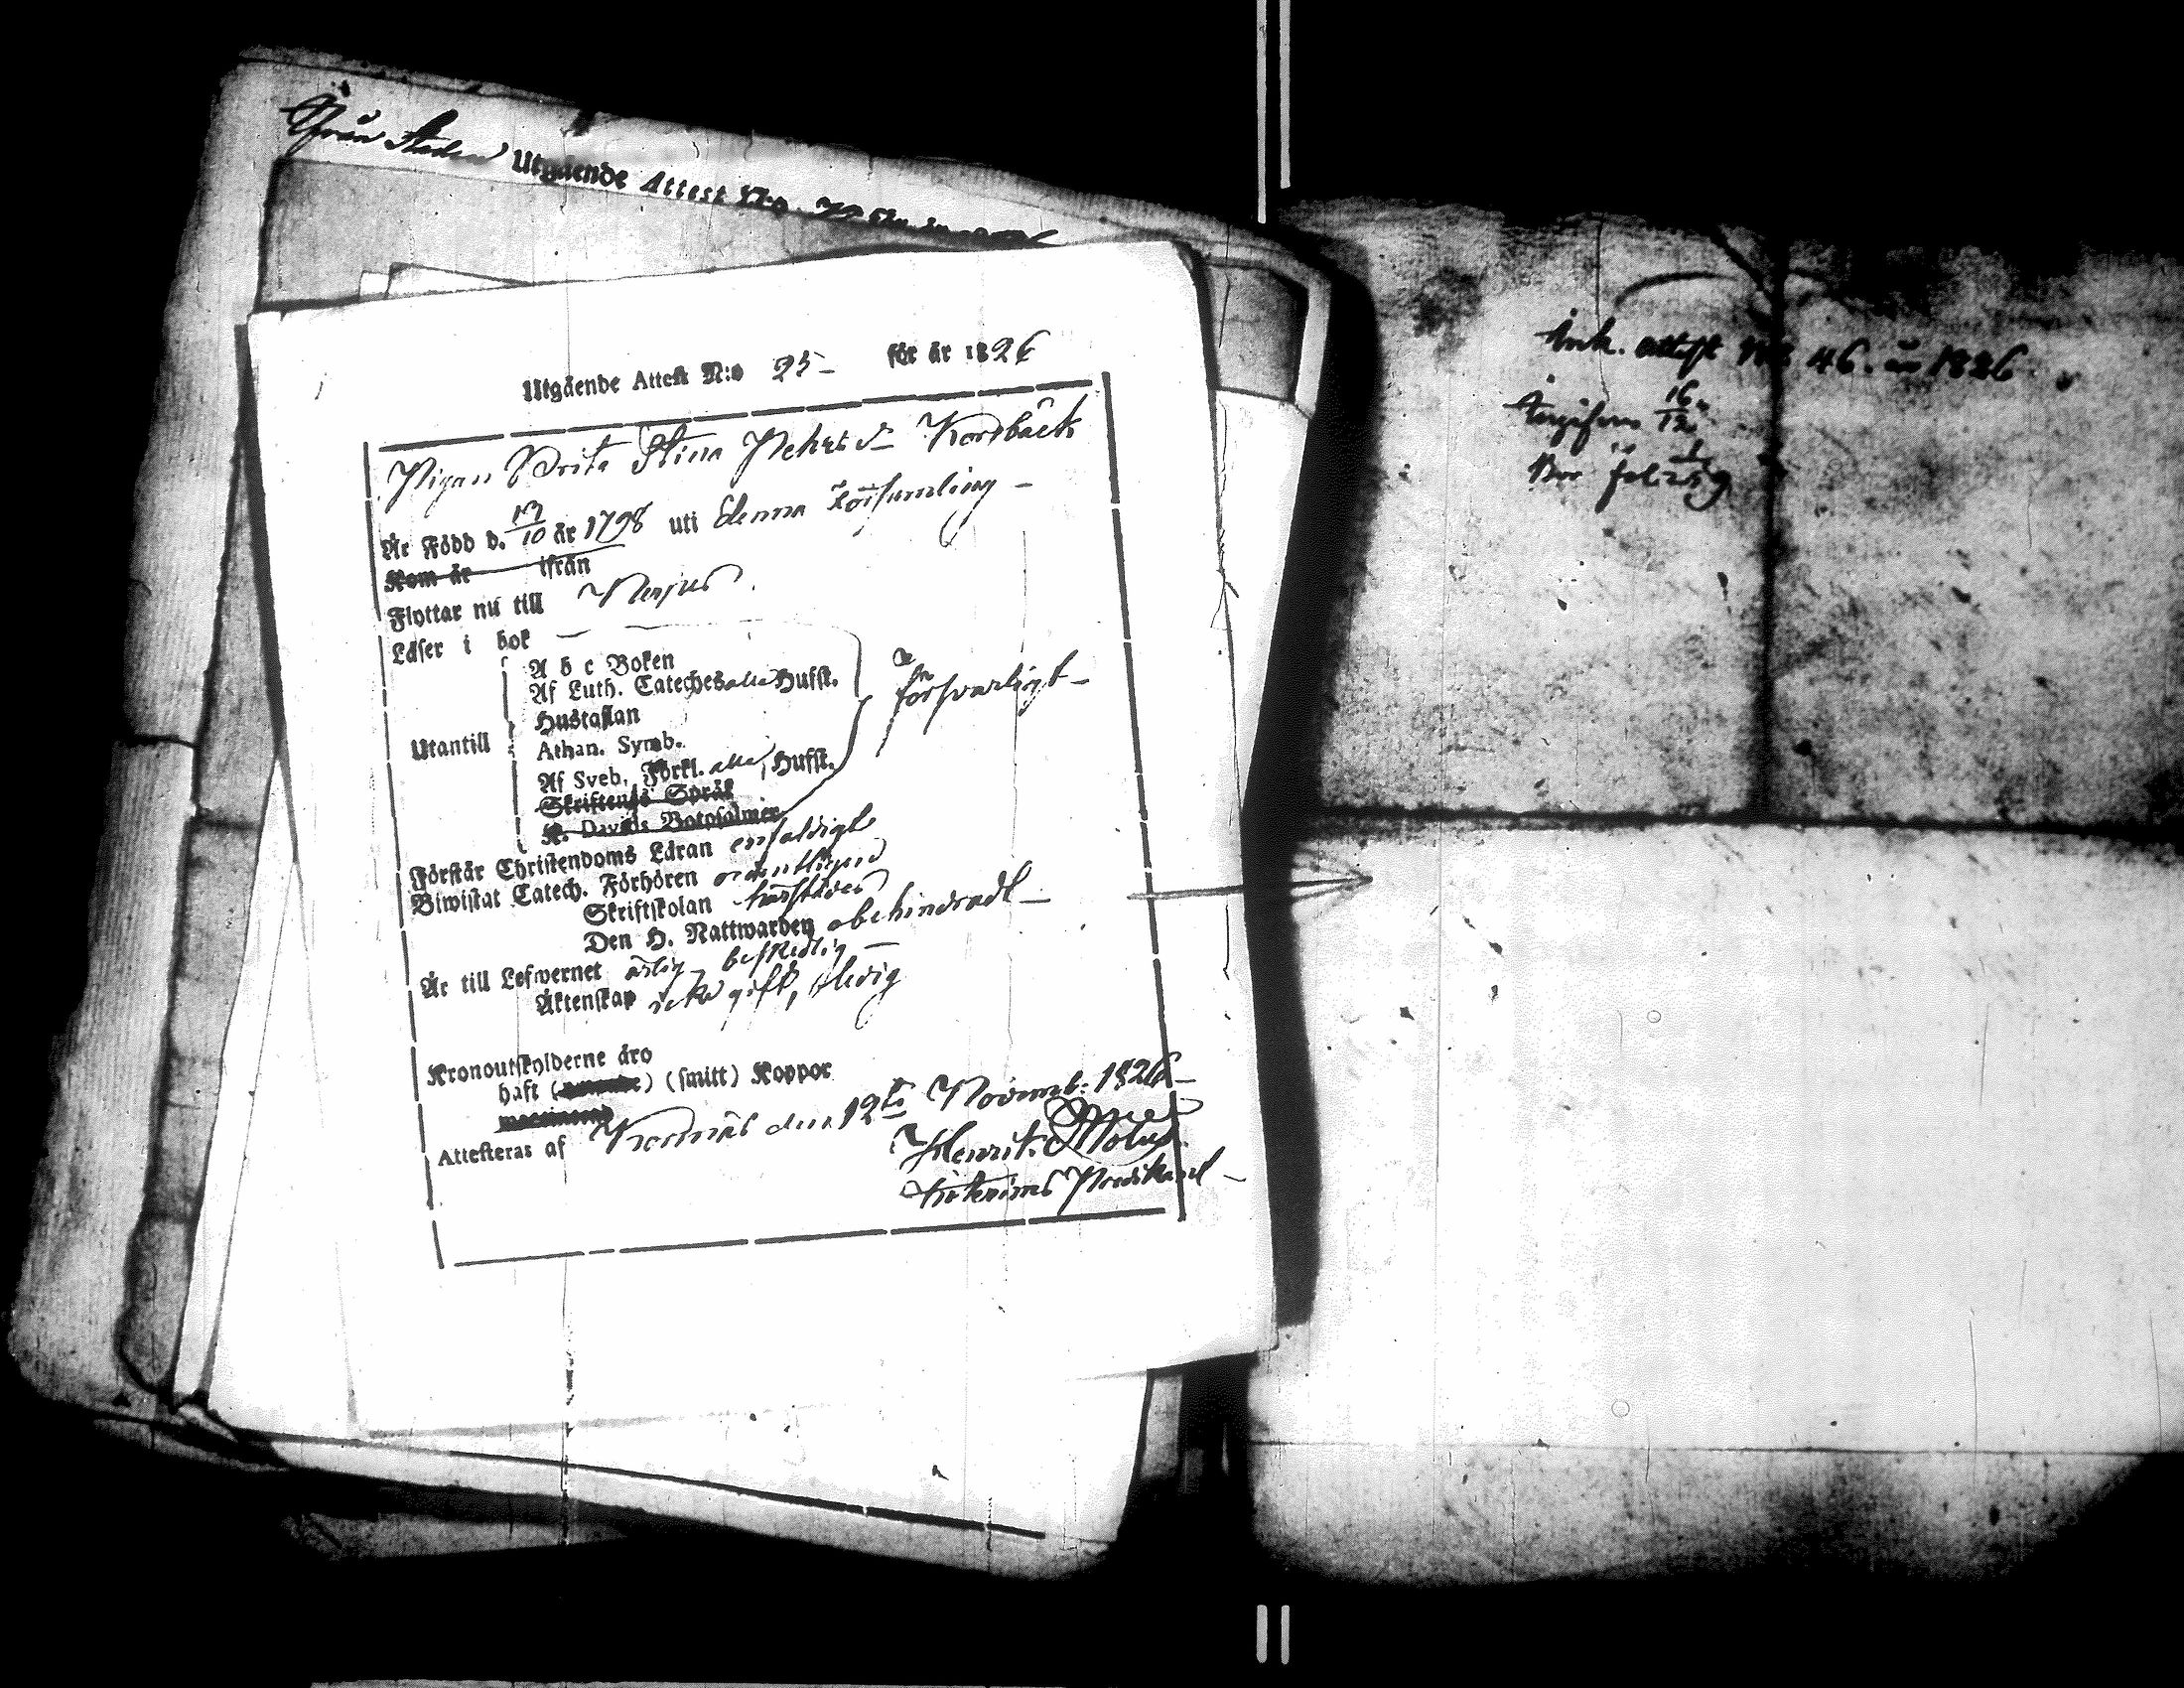 Från Staden Utgående Attest N:o
Utgående Attest N:o 25 för år 1826
Pigan Brita Stina Pehrsd. Norrbäck
Är Född d. 17/10 år 1798 uti denna Församling
Kom år ifrån
Flyttar nu till
Läser i bok
A b c Boken
Af Luth. Cateches alla Hufst.
Hustaflan
försvarligt
Utantill
Athan. Symb.
Af Sveb. Förkl. alla Hufst.
Skriftenes Språk
K. Davids Botpsalmer
Förstår Christendoms Läran enfaldigt
Biwistat Catech. Förhören ordentligen
Skriftskolan
Den H. Nattwarden obehindradt
Är till Lefwernet ärlig beskedlig
Äktenskap icke gift, ledig
Kronoutskylderne äro
haft () (smitt) Koppor
Attesteras af den 12te Novemb. 1826
Henrik
Predikant
Ink. attest N:o 46. år 1826
Ingifven 16/12
Bor fol.